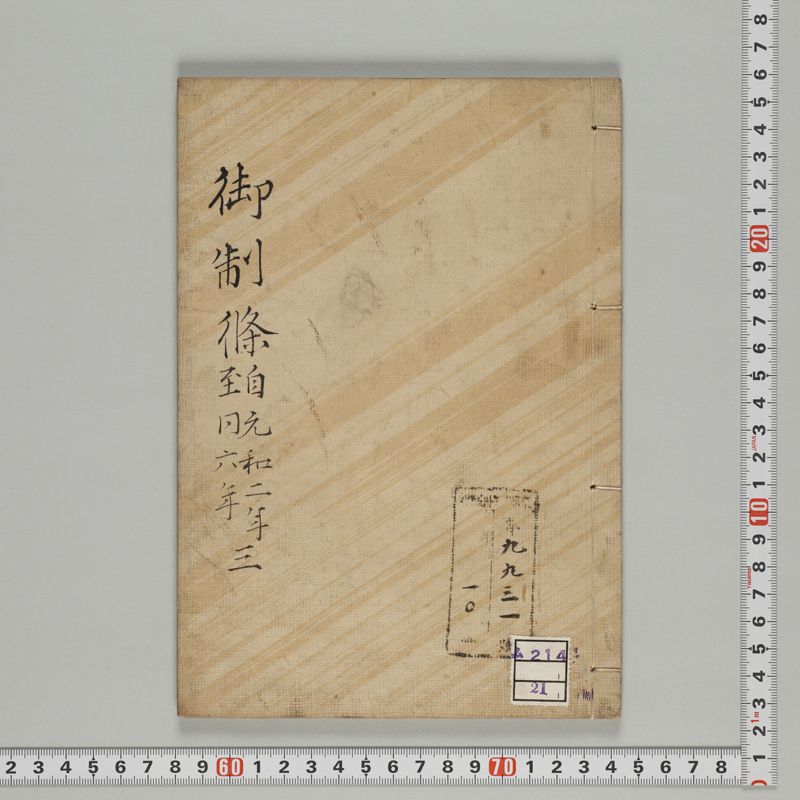 御制條
自元和二年
至同六年
三
九九三一
一〇
214
21
8
7
6
5
4
3
2
1
20
9
8
7
6
5
4
3
2
1
10
9
8
7
6
5
4
3
2
1
1m
JAPAN
2 3 4 5 6 7 8 9 60 1 2 3 4 5 6 7 8 9 70 1 2 3 4 5 6 7 8